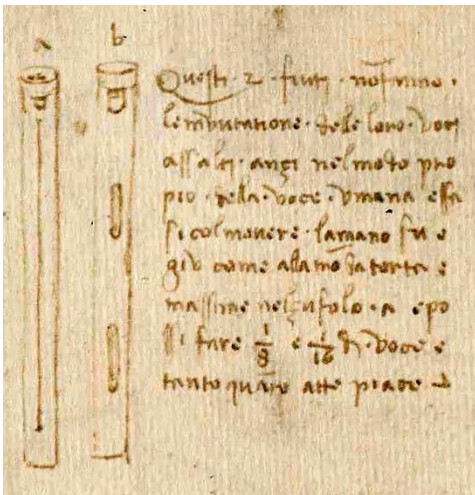 a b
Questi · 2 · fiuti · nō fanno ·
le mvtatione · dele loro · voci
assalti · anzi nel modo pro
pio · della · voce · vmana e ffa
si col movere · la mano sv e
giv come alla tronba torta e
massime nel zvfolo · a e po
ssi fare 1/8 e 1/16 di · voce e
tanto quāto atte piace